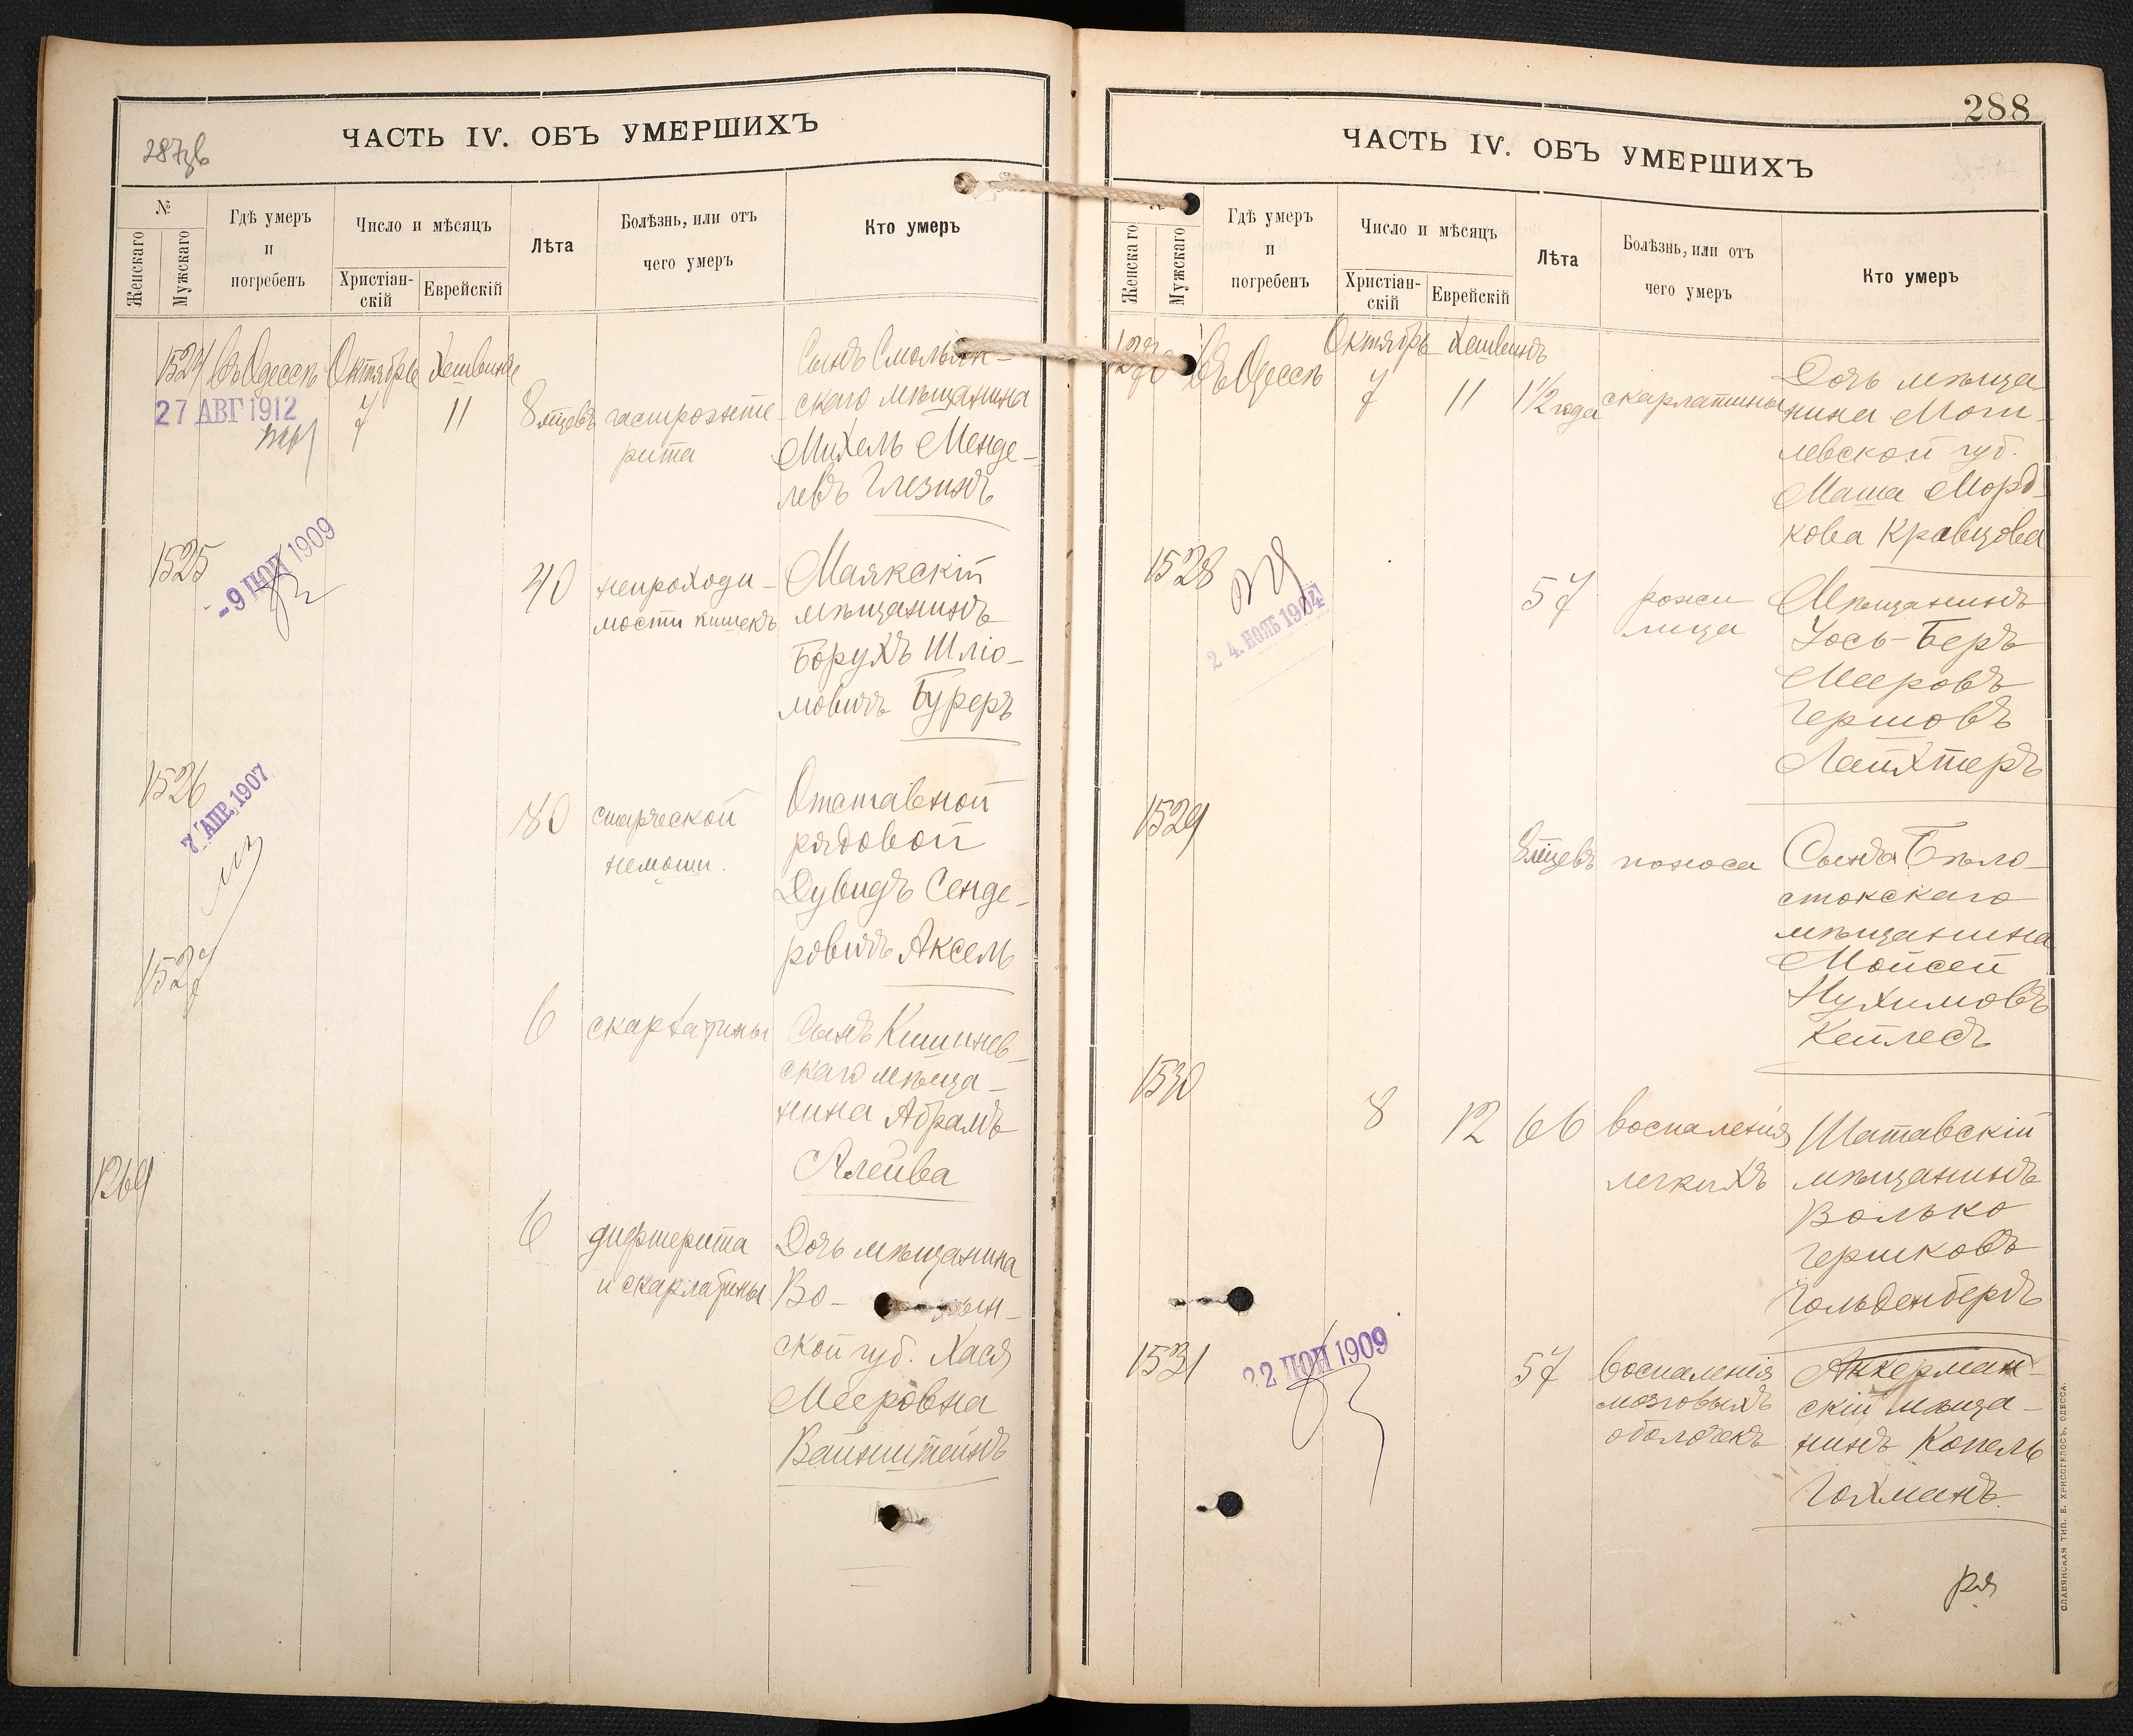 287об
ЧАСТЬ IV. ОБЪ УМЕРШИХЪ
№
Женскаго
Мужскаго
Гдѣ умеръ
и
погребенъ
Число и мѣсяцъ
Христіан-
скій
Еврейскій
Лѣта
Болѣзнь, или отъ
чего умеръ
Кто умеръ
1524
Въ Одессѣ
Октябрь
Хешвинъ
27 АВГ 1912
7
11
8 мѣцевъ
гастроэнте-
рита
Сынъ Смольян-
скаго мѣщанина
Михель Менде-
левъ Глезинъ
1525
-9 ІЮН 1909
40
непроходи-
мости кишекъ
Маякскій
мѣщанинъ
Борухъ Шліо-
мовичъ Буреръ
1526
7 АПР. 1907
80
старческой
немощи.
Отставной
рядовой
Дувидъ Сенде-
ровичъ Аксель
1527
6
скарлатины
Сынъ Кишинев-
скаго мѣща-
нина Абрамъ
Алейва
1269
6
дифтерита
и скарлатины
Дочь мѣщанина
Во- лын-
ской губ. Хася
Мееровна
Вайнштейнъ
288
ЧАСТЬ IV. ОБЪ УМЕРШИХЪ
№
Женскаго
Мужскаго
Гдѣ умеръ
и
погребенъ
Число и мѣсяцъ
Христіан-
скій
Еврейскій
Лѣта
Болѣзнь, или отъ
чего умеръ
Кто умеръ
1270
Въ Одессѣ
Октябрь
Хешвинъ
7
11
1 1/2 года
скарлатины
Дочь мѣща
нина Моги-
левской губ.
Маша Морд-
кова Кравцова
1528
24. НОЯБ 1904
57
рожи
лица
Мѣщанинъ
Іось-Беръ
Мееровъ
Гершовъ
Лайхтеръ
1529
8 мѣцевъ
поноса
Сынъ Бѣло-
стокскаго
мѣщанина
Мойсей
Нухимовъ
Кейлесъ
1530
8
12
66
воспаленія
легкихъ
Шатавскій
мѣщанинъ
Волько
Гершковъ
Гольденбергъ
1531
22 ІЮН 1909
57
воспаленія
мозговыхъ
оболочекъ
Аккерман-
скій мѣща-
нинъ Копель
Гохманъ.
СЛАВЯНСКАЯ ТИП. Е. ХРИСОГЕЛОСЪ, ОДЕССА.